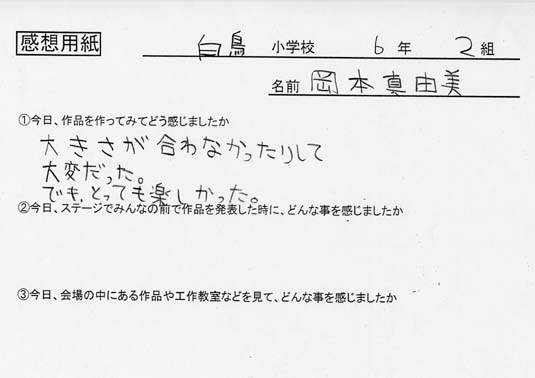 感想用紙
白鳥 小学校 6 年 2 組
名前 岡本真由美
①今日、作品を作ってみてどう感じましたか
大きさが合わなかったりして
大変だった。
でも、とっても楽しかった。
②今日、ステージでみんなの前で作品を発表した時に、どんな事を感じましたか
③今日、会場の中にある作品や工作教室などを見て、どんな事を感じましたか